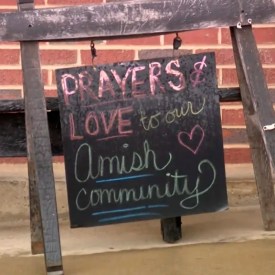 PRAYERS &
LOVE to our
Amish
community